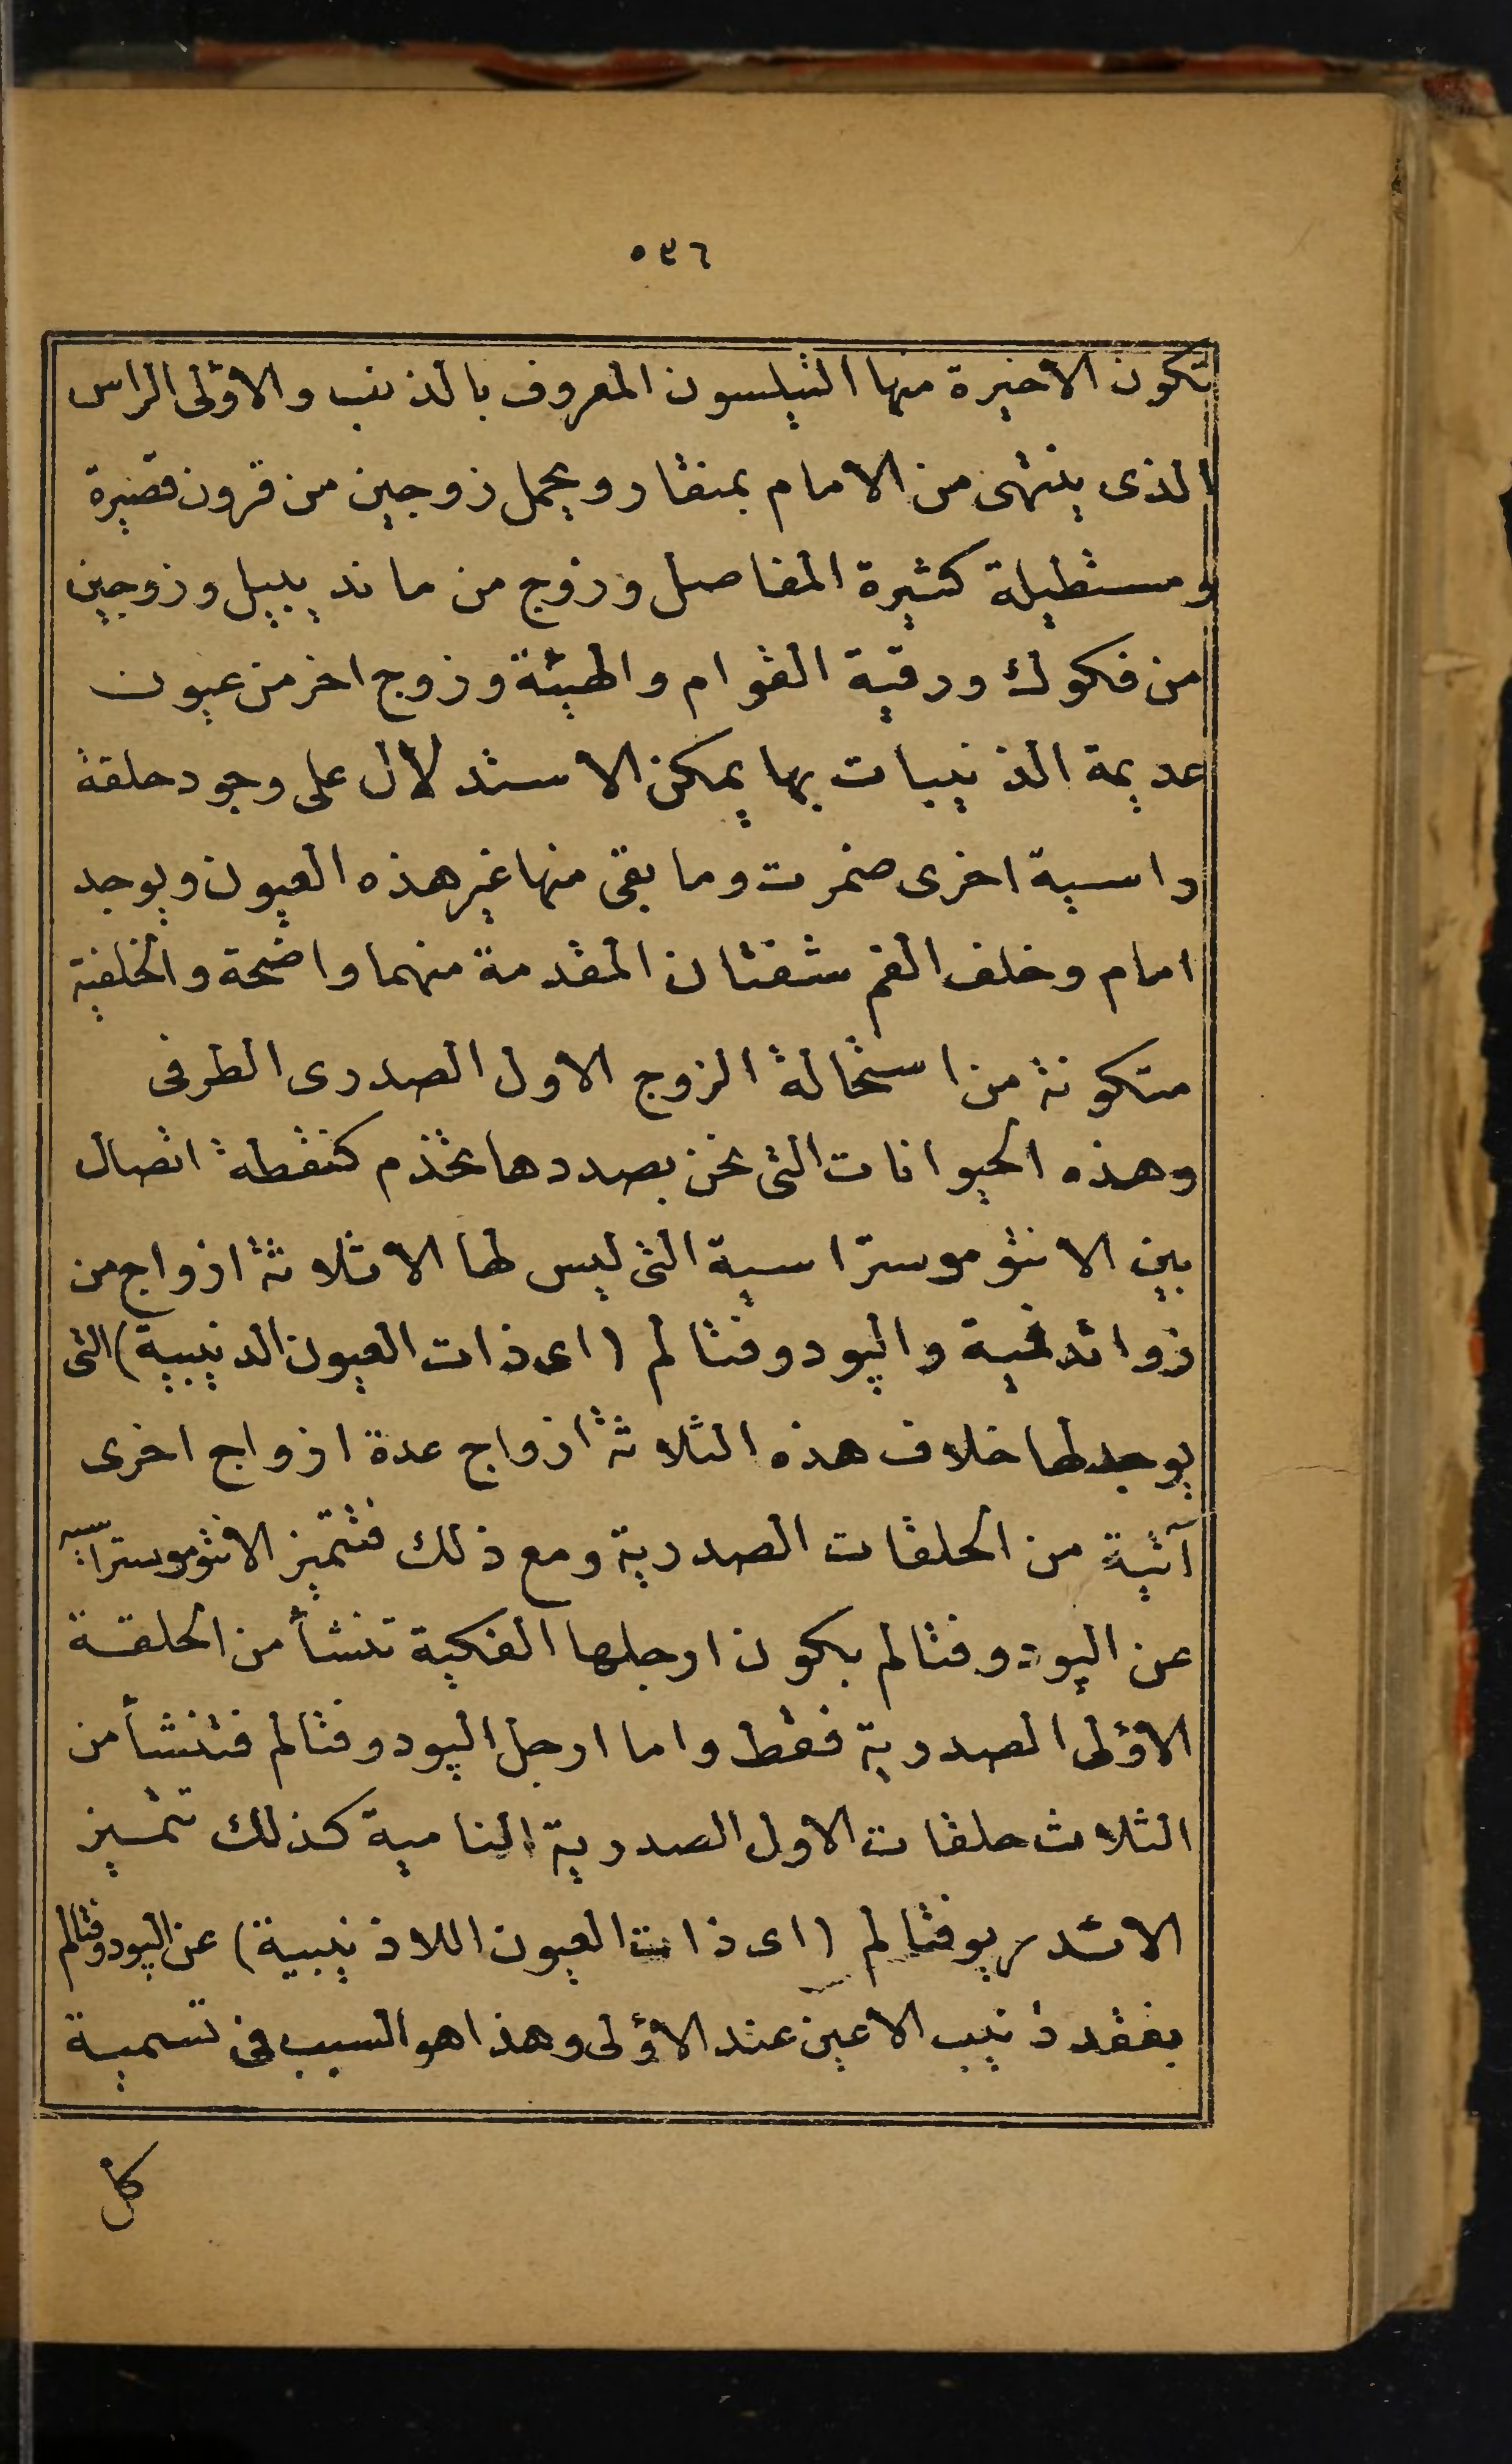 ٥٤٦
تكون الاخيرة منها التيلسون المعروف بالذنب والاؤلى الراس
الذى ينتهى من الامام بمنقار ويحمل زوجين من قرون قصيرة
ومستطيلة كثيرة المفاصل وزوج من مانديبيل وزوجين
من فكوك ورقية القوام والهيئة وزوج اخر من عيون
عديمة الذنيبات بها يمكن الاستدلال على وجود حلقة
راسية اخرى ضمرت وما بقى منها غير هذه العيون ويوجد
امام وخلف الفم شفتان المقدمة منهما واضحة والخلفية
متكونة من استحالة الزوج الاول الصدرى الطرفى
وهذه الحيوانات التى نحن بصددها تخذم كنقطة اتصال
بين الانتوموستراسية التى ليس لها الا ثلاثة ازواج من
زوائد فمية والپودوفتالم (اى ذات العيون الذنيبية) التى
يوجد لها خلاف هذه الثلاثة ازواج عدة ازواج اخرى
آتية من الحلقات الصدرية ومع ذلك فتتميز الانتوموستراسية
عن الپودوفتالم بكون ارجلها الفكية تنشأ من الحلقة
الاؤلى الصدرية فقط واما ارجل الپودوفتالم فتنشأ من
الثلاث حلقات الاول الصدرية النامية كذلك تتميز
الائدريوفتالم (اى ذات العيون اللاذنيبية) عن الپودوفتالم
بفقد ذنيب الاعين عند الاؤلى وهذا هو السبب فى تسمية
كل